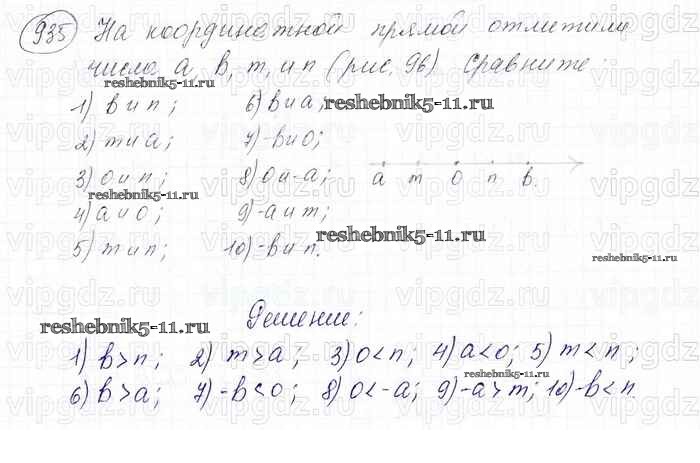 935 На координатной прямой отметили
числа a, b, m, и n (рис. 96). Сравните:
reshebnik5-11.ru
1) b и n; 6) b и a; reshebnik5-11.ru
2) m и a; 7) -b и 0;
3) 0 и n; 8) 0 и -a; a m 0 n b.
reshebnik5-11.ru
4) a и 0; 9) -a и m;
5) m и n; 10) -b и n. reshebnik5-11.ru
reshebnik5-11.ru
Решение:
reshebnik5-11.ru
1) b > n; 2) m > a; 3) 0 < n; 4) a < 0; 5) m < n;
reshebnik5-11.ru
6) b > a; 7) -b < 0; 8) 0 < -a; 9) -a > m; 10) -b < n.
vipgdz.ru